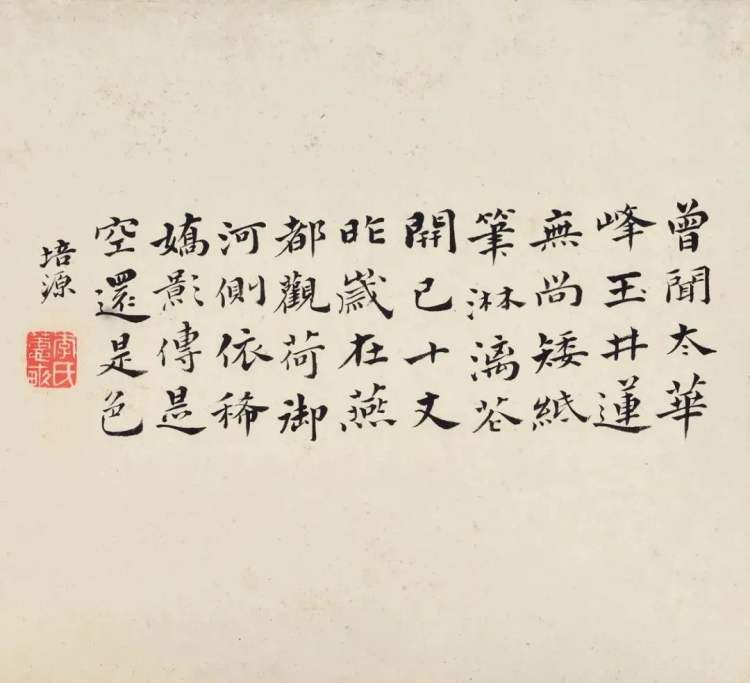 曾聞太華
峰玉井蓮
無尚矮紙
筆淋漓花
開已十丈
昨歲在燕
都觀荷御
河側依稀
嬌影傳是
空還是色
培源
李氏